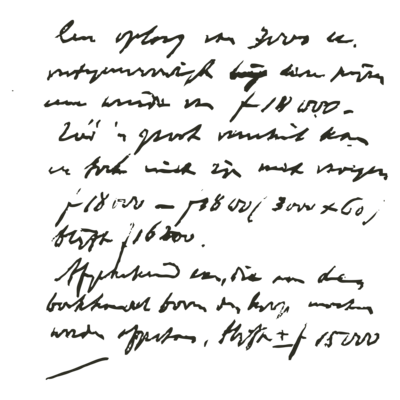 Een oplaag van 3000 ex.
vertegenwoordigt
een waarde van f 18000.-
Zóó 'n groot verschil kan
er toch niet zijn met vroeger
f 18000 – f 1800 (3000 x 60)
blijft f 16200.
Afgerekend ex., die aan den
boekhandel boven den koop moeten
worden afgestaan, blijft ± f 15000